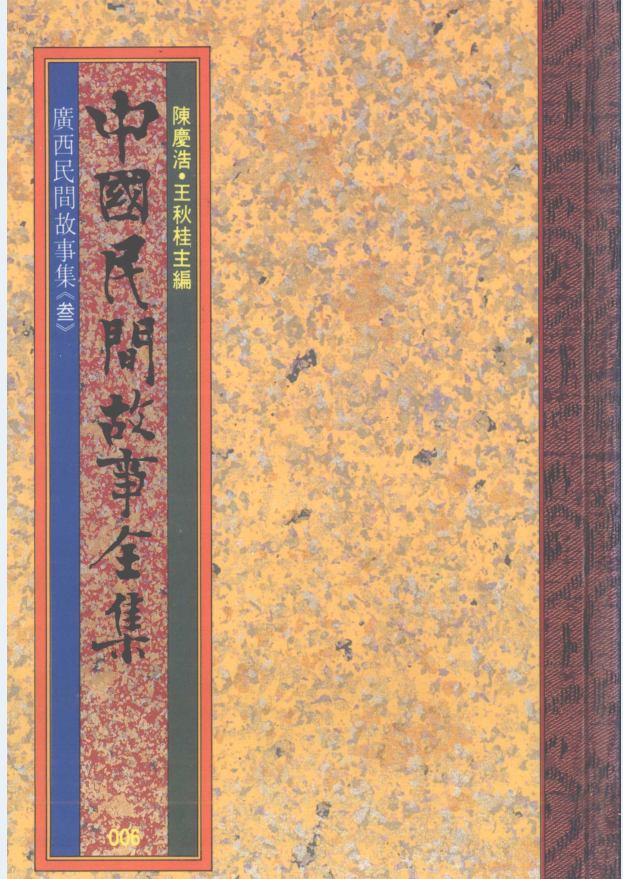 陳慶浩•王秋桂主編
中國民間故事全集
廣西民間故事集《叁》
006